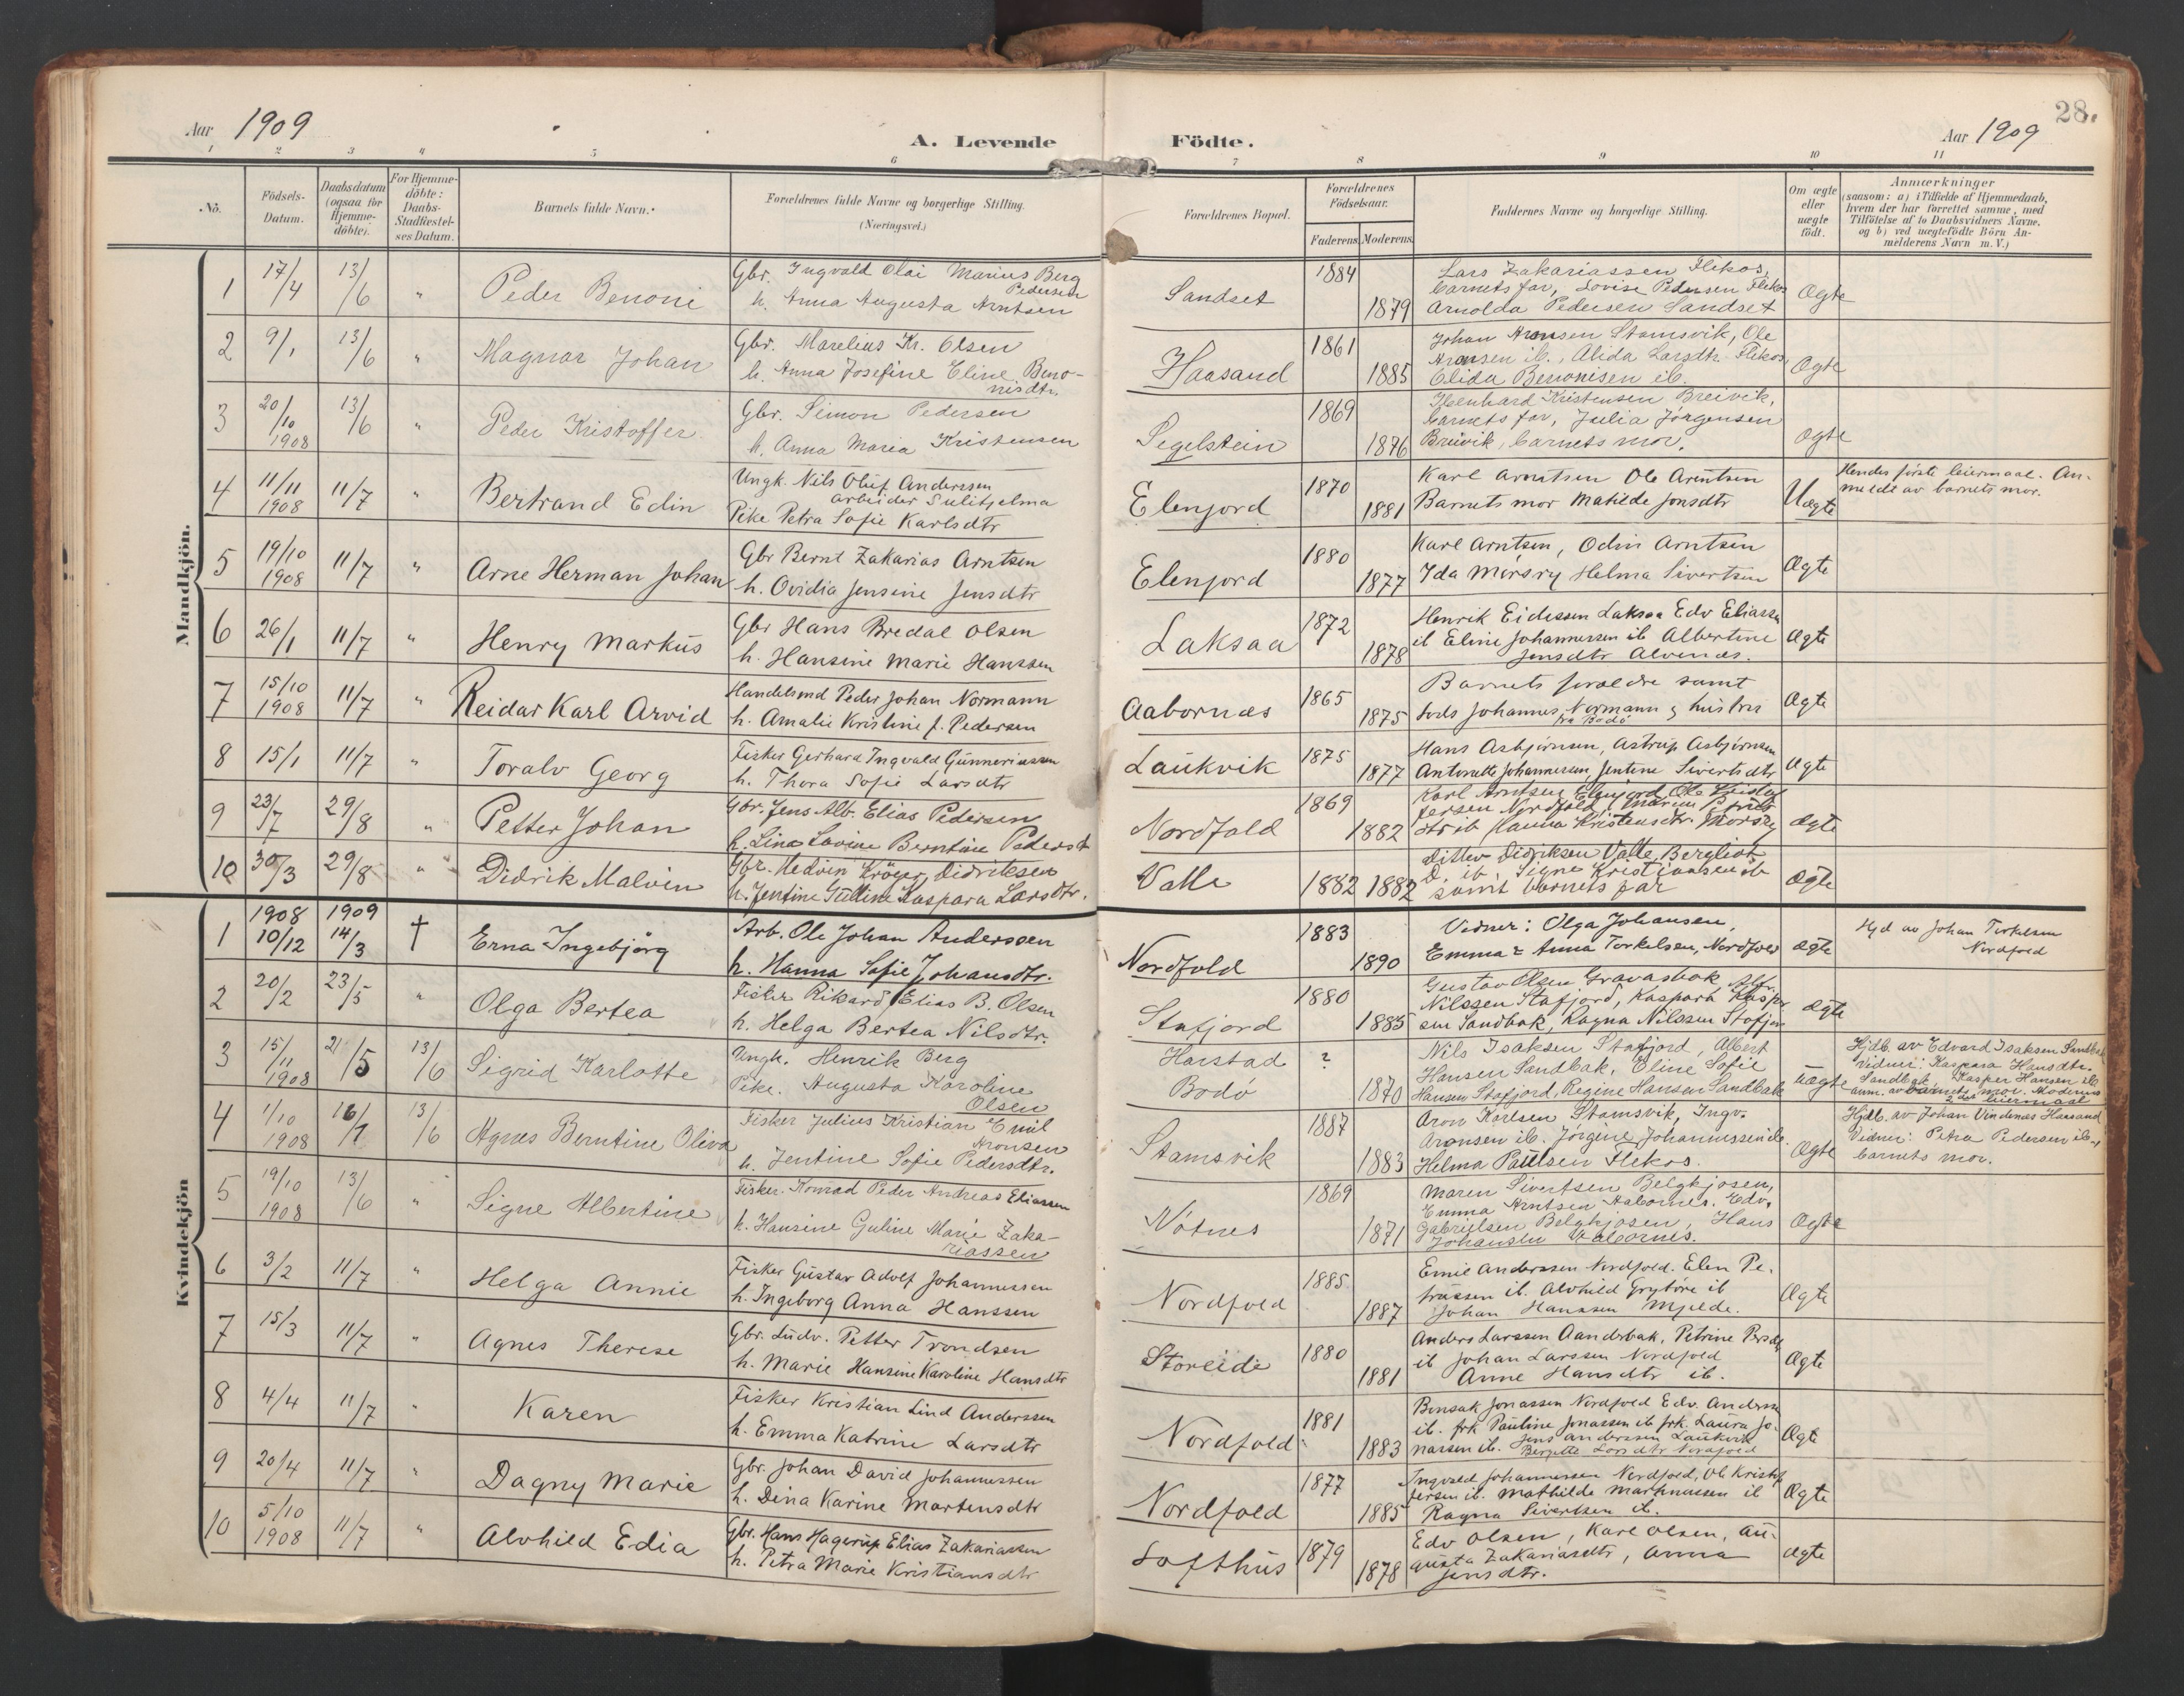 28.
Aar 1909
A. Levende Födte.
Aar 1909
1 2 3 4 5 6 7 8 9 10 11
No.
Födsels-Datum.
Daabsdatum (ogsaa for Hjemme-döbte).
For Hjemme-döbte: Daabs-Stadfæstel-ses Datum.
Barnets fulde Navn.
Forældrenes fulde Navne og borgerlige Stilling. (Næringsvei.)
Forældrenes Bopæl.
Forældrenes Födselsaar.
Faderens. Moderens.
Faddernes Navne og borgerlige Stilling.
Om ægte eller uægte födt.
Anmærkninger
(saasom: a) i Tilfælde af Hjemmedaab,
hvem der har forrettet samme, med
Tilföielse af to Daabsvidners Navne,
og b) ved uægtefödte Börn An-
melderens Navn m. V.)
Mandkjön.
1 17/4 13/6 " Peder Benoni
Gbr. Ingvald Olai Marius Berg Pedersen
h. Anna Augusta Arntsen
Sandset 1884 1879
Lars Zakariassen Flekos,
barnets far, Lovise Pedersen Flekos
Arnolda Pedersen Sandset
Ægte
2 9/1 13/6 " Magnar Johan
Gbr. Marelius Kr. Olsen
h. Anna Josefine Eline Beno-
nisdtr.
Haasand 1861 1885
Johan Aronsen Stamsvik, Ole
Aronsen ib., Alida Larsdtr. Flekos
Elida Benonisen ib.
Ægte
3 20/10 1908 13/6 " Peder Kristoffer
Gbr. Simon Pedersen
h. Anna Maria Kristensen
Segelstein 1869 1876
Ibenhard Kristensen Breivik,
barnets far, Julia Jörgensen
Breivik, barnets mor.
Ægte
4 11/11 1908 11/7 " Bertrand Edin
Ungk. Nils Oluf Anderssen
arbeider Sulitjelma
Pike Petra Sofie Karlsdtr
Elenjord 1870 1881
Karl Arntsen Ole Arntsen
Barnets mor Matilde Jonsdtr
Uægte
Hendes første leiermaal. An-
meldt av barnets mor.
5 19/10 1908 11/7 " Arne Herman Johan
Gbr Bernt Zakarias Arntsen
h. Ovidia Jensine Jensdtr
Elenjord 1880 1877
Karl Arntsen, Odin Arntsen
Ida Mörsry Helma Sivertsen
Ægte
6 26/1 11/7 " Henry Markus
Gbr Hans Bredal Olsen
h. Hansine Marie Hanssen
Laksaa 1872 1878
Henrik Eidessen Laksaa Edv Eliassen
ib Eline Johannessen ib Albertine
Jensdtr Alvenes.
Ægte
7 15/10 1908 11/7 " Reidar Karl Arvid
Handelsmd Peder Johan Normann
h. Amalie Kristine f. Pedersen
Aabornæs 1865 1875
Barnets foraldre samt
Lods Johannes Normann & hustru
fra Bodö
Ægte
8 15/1 11/7 " Toralv Georg
Fisker Gerhard Ingvald Gunneriussen
h. Thora Sofie Larsdtr
Laukvik 1875 1877
Hans Asbjørnsen, Astrup Asbjørnsen
Antonette Johannessen, Jentine Sivertsdtr
Ægte
9 23/7 29/8 " Petter Johan
Gbr. Jens Alb. Elias Pedersen
h. Lina Lovine Berntine Pedersd
Nordfold 1869 1882
Karl Arntsen Elenjord, Ole Kristof
fersen Nordfold,
ib Hanna Kristensdtr. Mörsry
Ægte
10 30/3 29/8 " Didrik Malvin
Gbr. Hedvin Kröger Didriksen
h. Jentine Gulline Kaspara Larsdtr.
Valle 1882 1882
Ditlev Didriksen Valle, Bergliot
D. ib, Signe Kristiansen ib
samt barnets far
Ægte
Kvindekjön
1 1908 10/12 1909 14/3 † Erna Ingebjörg
Arb. Ole Johan Anderssen
h. Hanna Sofie Johansdtr.
Nordfold 1883 1890
Vidner: Olga Johansen,
Emma & Anna Torkelsen, Nordfold
Ægte
Hjd av Johan Torkelsen
Nordfold
2 20/2 23/5 " Olga Bertea
Fisker Rikard Elias B. Olsen
h. Helga Bertea Nilsdtr.
Stafjord 1880 1885
Gustav Olsen Gravasbak,
Nilssen Stafjord, Kaspara Kasper
sen Sandbak, Ragna Nilssen Stafjor
Ægte
3 15/11 1908 21/5 13/6 Sigrid Karlotte
Ungk. Henrik Berg
Pike. Augusta Karoline
Olsen
Harstad
Bodö ? 1870
Nils Isaksen Stafjord, Albert
Hansen Sandbak, Eline Sofie
Hansen Stafjord, Regine Hansen Sandbak
Uægte
Hjdb. av Edvard Isaksen Sandbak
Vidner: Kaspara Hansdtr.
Sandbak, Kasper Hansen ib
anm. av barnets mor. Moderens
2 det leiermaal
4 1/10 1908 16/1 13/6 Agnes Berntine Oliva
Fisker Julius Kristian Emil
Aronsen
h. Jentine Sofie Pedersdtr.
Stamsvik 1887 1883
Aron Karlsen Stamsvik, Ingv.
Aronsen ib. Jörgine Johannessen ib.
Helma Paulsen Flekos.
Ægte
Hjdb. av Johan Vindenæs Haasand
Vidner: Petra Pedersen ib.,
barnets mor.
5 19/10 1908 13/6 " Signe Albertine
Fisker. Konrad Peder Andreas Eliassen
h. Hansine Guline Marie Zaka-
riassen
Nötnes 1869 1871
Maren Sivertsen Belgkjosen,
Emma Arntsen Aabornes. Edv.
Gabrielsen Belgkjosen, Hans
Johansen Aabornes.
Ægte
6 3/2 11/7 " Helga Annie
Fisker Gustav Adolf Johannessen
h. Ingeborg Anna Hanssen
Nordfold 1885 1887
Emil Anderssen Nordfold. Elen Pe-
trussen ib. Alvhild Grytöre ib
Johan Hanssen Mjelde.
Ægte
7 15/3 11/7 " Agnes Therese
Gbr. Ludv. Petter Trondsen
h. Marie Hansine Karoline Hansdtr
Storeide 1880 1881
Anders Larssen Aanderbak, Petrine
ib Johan Larssen Nordfold
Anne Hansdtr ib.
Ægte
8 4/4 11/7 " Karen
Fisker Kristian Lind Anderssen
h. Emma Katrine Larsdtr
Nordfold 1881 1883
Jonassen Nordfold Edv. Anderssen
ib. frk Pauline Jonassen ib frk. Laura Jo-
nassen ib. Jens Anderssen Laukvik
Bergitte Larsdtr Nordfold
Ægte
9 20/4 11/7 " Dagny Marie
Gbr. Johan David Johannessen
h. Dina Karine Martensdtr
Nordfold 1877 1885
Ingvald Johannessen Nordfold, Ole Kristof
fersen ib. Mathilde Markussen ib
Ragna Sivertsen ib.
Ægte
10 5/10 1908 11/7 " Alvhild Edia
Gbr. Hans Hagerup Elias Zakariassen
h. Petra Marie Kristiansdtr
Lofthus 1879 1878
Edv Olsen, Karl Olsen, Au-
gusta Zakariasdtr, Anna
Jensdtr.
Ægte